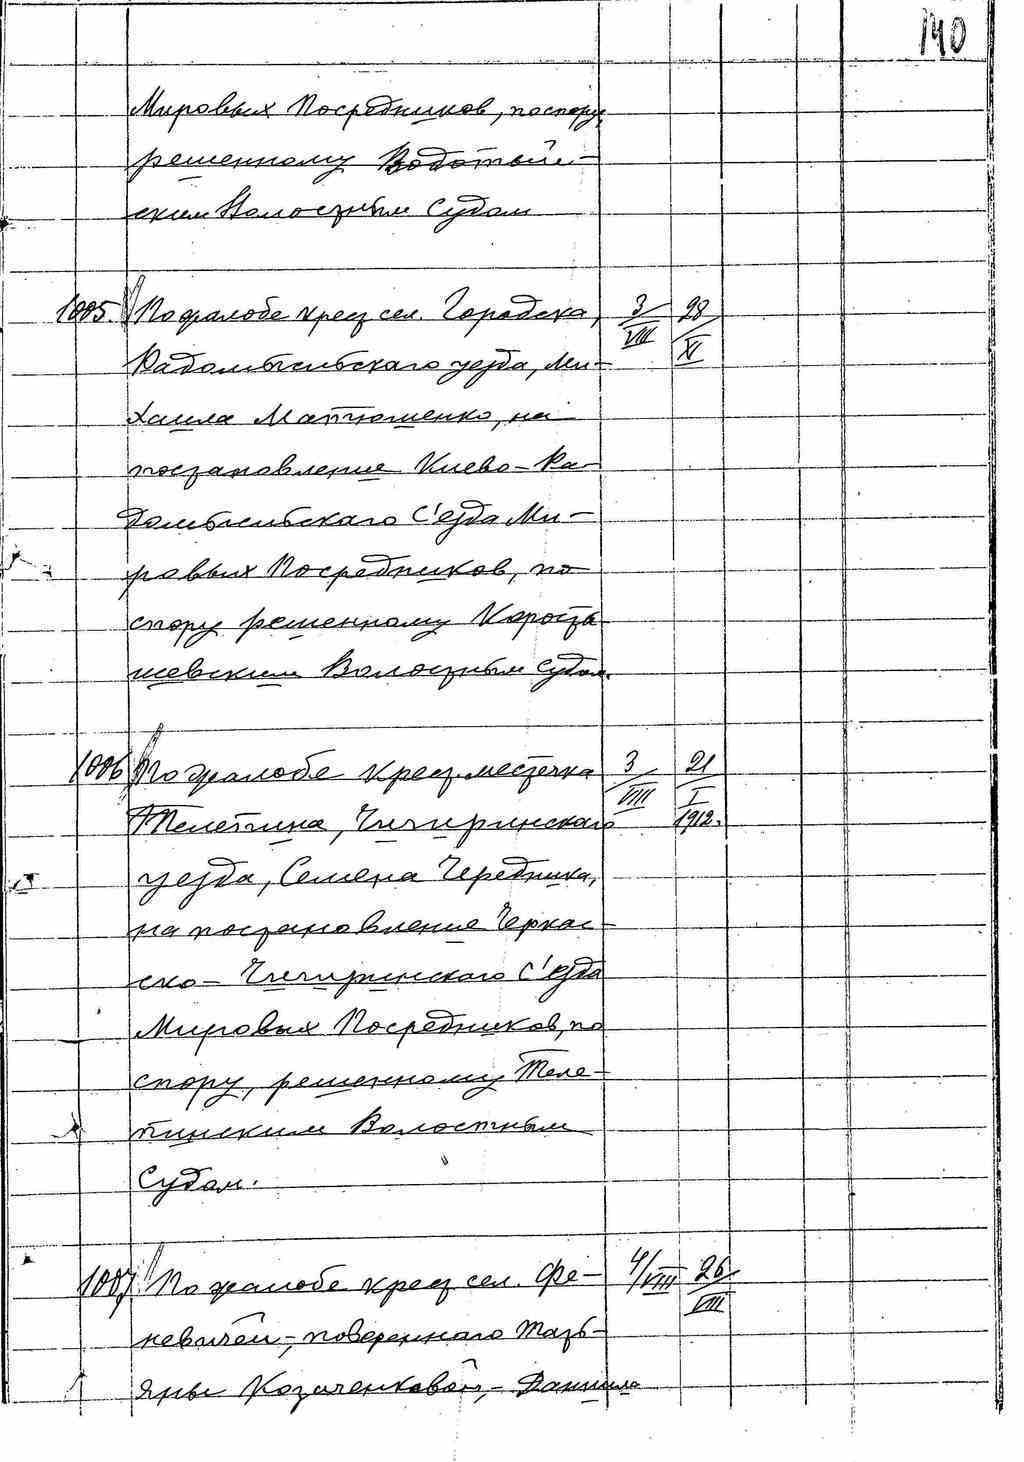 140
Мировых Посредников, по спору,
решенному Водотый-
ским Волостным Судом
1005. По жалобе крест. сел. Городска, 3/VIII 28/XI
Радомысльскаго уезда, Ми-
хаила Матюшенко, на
постановление Киево-Ра-
домысльскаго С'езда Ми-
ровых Посредников, по
спору решенному Коросты-
шевским Волостным Судом.
1006 По жалобе крест. местечка 3/VIII 21/I 1912.
Телепина, Чигиринскаго
уезда, Семена Чередника,
на постановление Черкас-
ско-Чигиринскаго С'езда
Мировых Посредников, по
спору, решенному Теле-
пинским Волостным
Судом.
1007 По жалобе крест. сел. Фе- 4/VIII 26/VIII
невичей, - повереннаго Тать-
яны Козаченковой, - Даниила